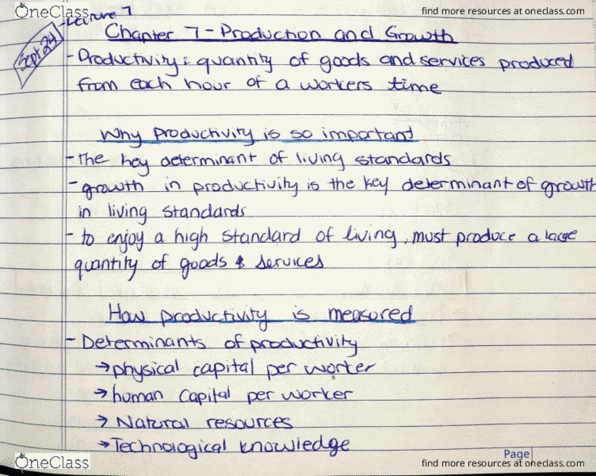 OneClass
find more resources at oneclass.com
- Lecture 7
Sept 24
Chapter 7 - Production and Growth
- Productivity: quantity of goods and services produced
from each hour of a workers time
Why productivity is so important
- The key determinant of living standards
- growth in productivity is the key determinant of growth
in living standards
- to enjoy a high standard of living, must produce a large
quantity of goods & services
How productivity is measured
- Determinants of productivity
→ physical capital per worker
→ human capital per worker
→ Natural resources
→ Technological knowledge
Page
OneClass
find more resources at oneclass.com